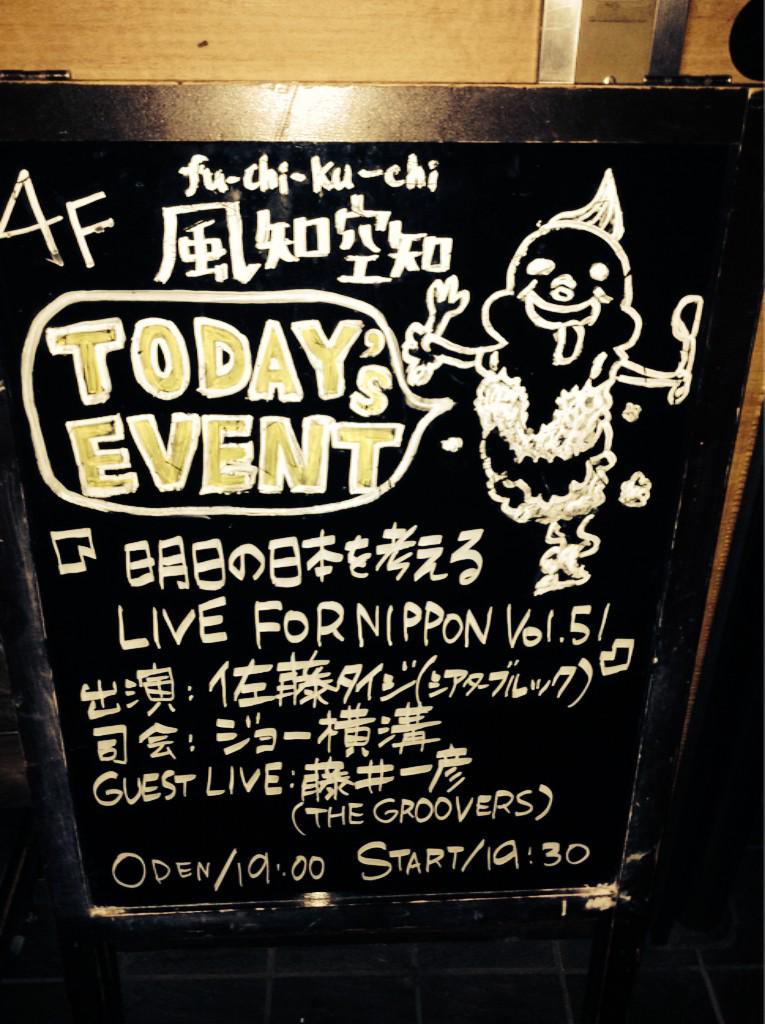 fu-chi-ku-chi
4F
風知空知
TODAY's
EVENT
『明日の日本を考える
LIVE FOR NIPPON Vol.51』
出演:佐藤タイジ(シアターブルック)
司会:ジョー横溝
GUEST LIVE:藤井一彦
(THE GROOVERS)
OPEN/19:00 START/19:30